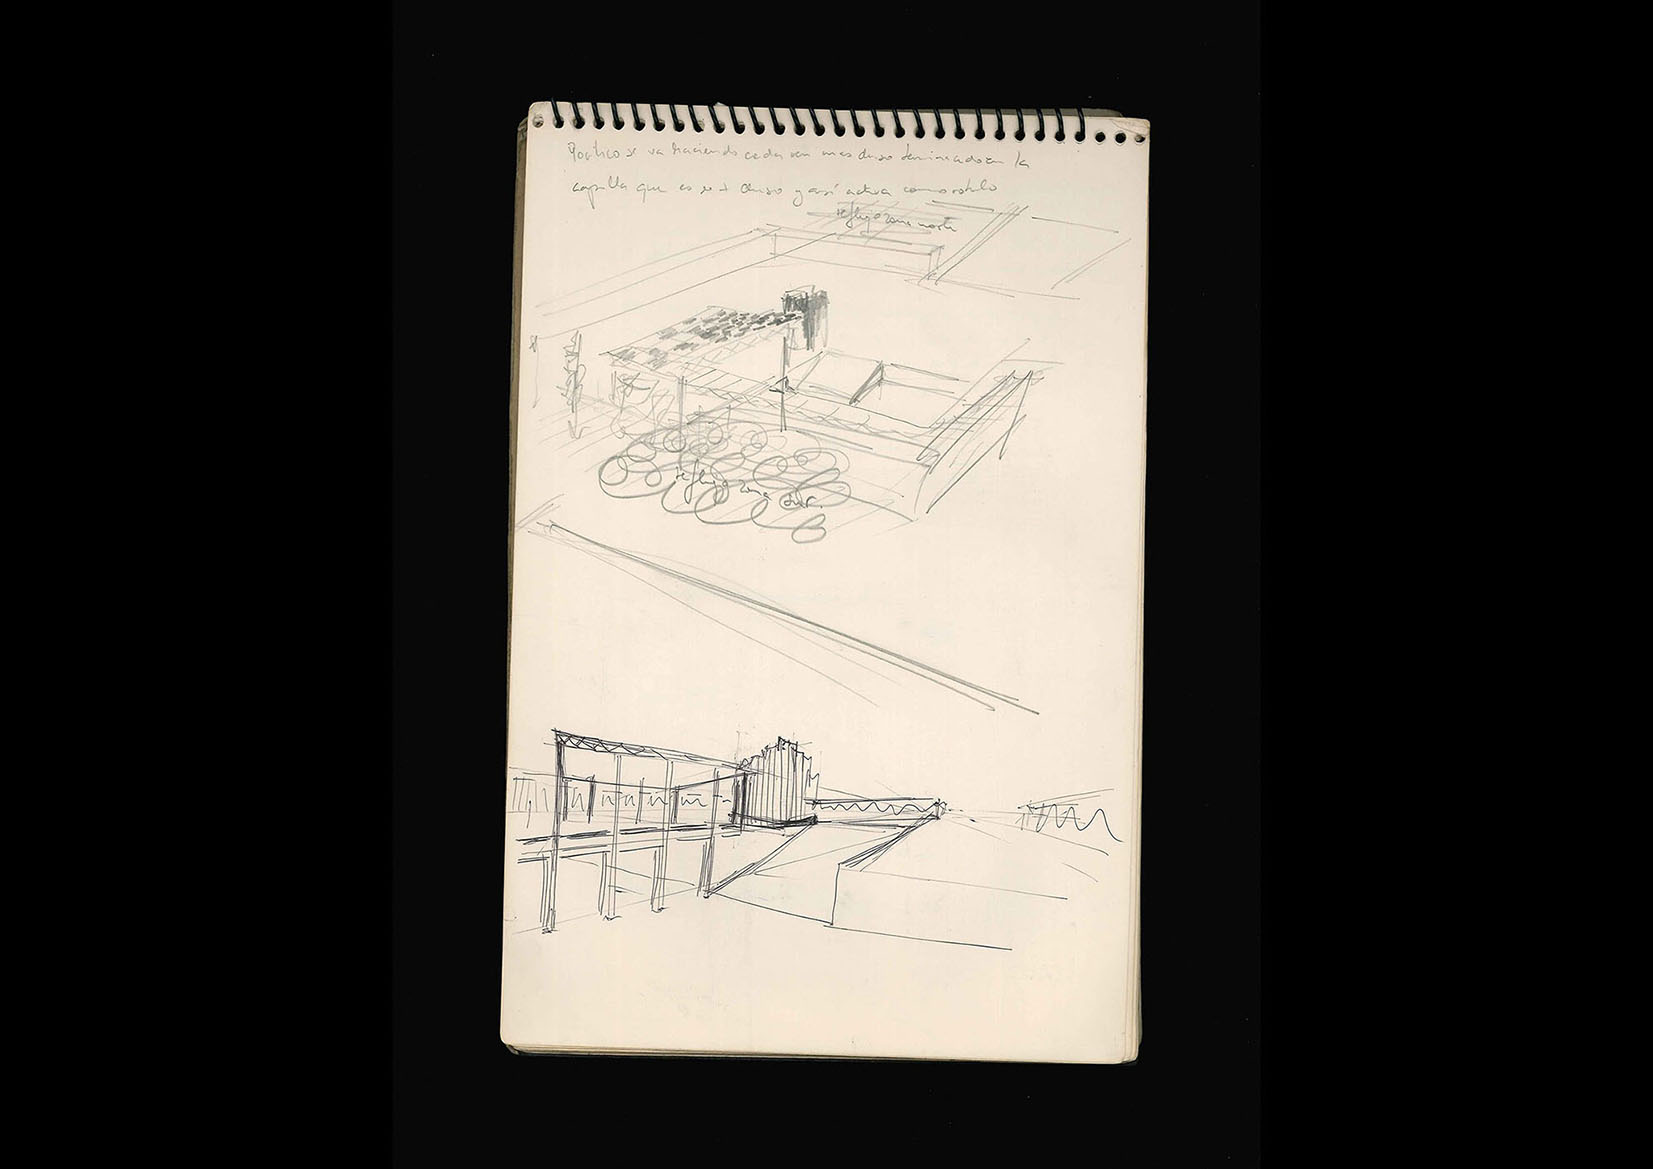 Pórtico se va haciendo cada vez mas denso terminado en la
capilla que es lo + denso y así actua como rotulo
refugio zona norte
refugio zona sur.